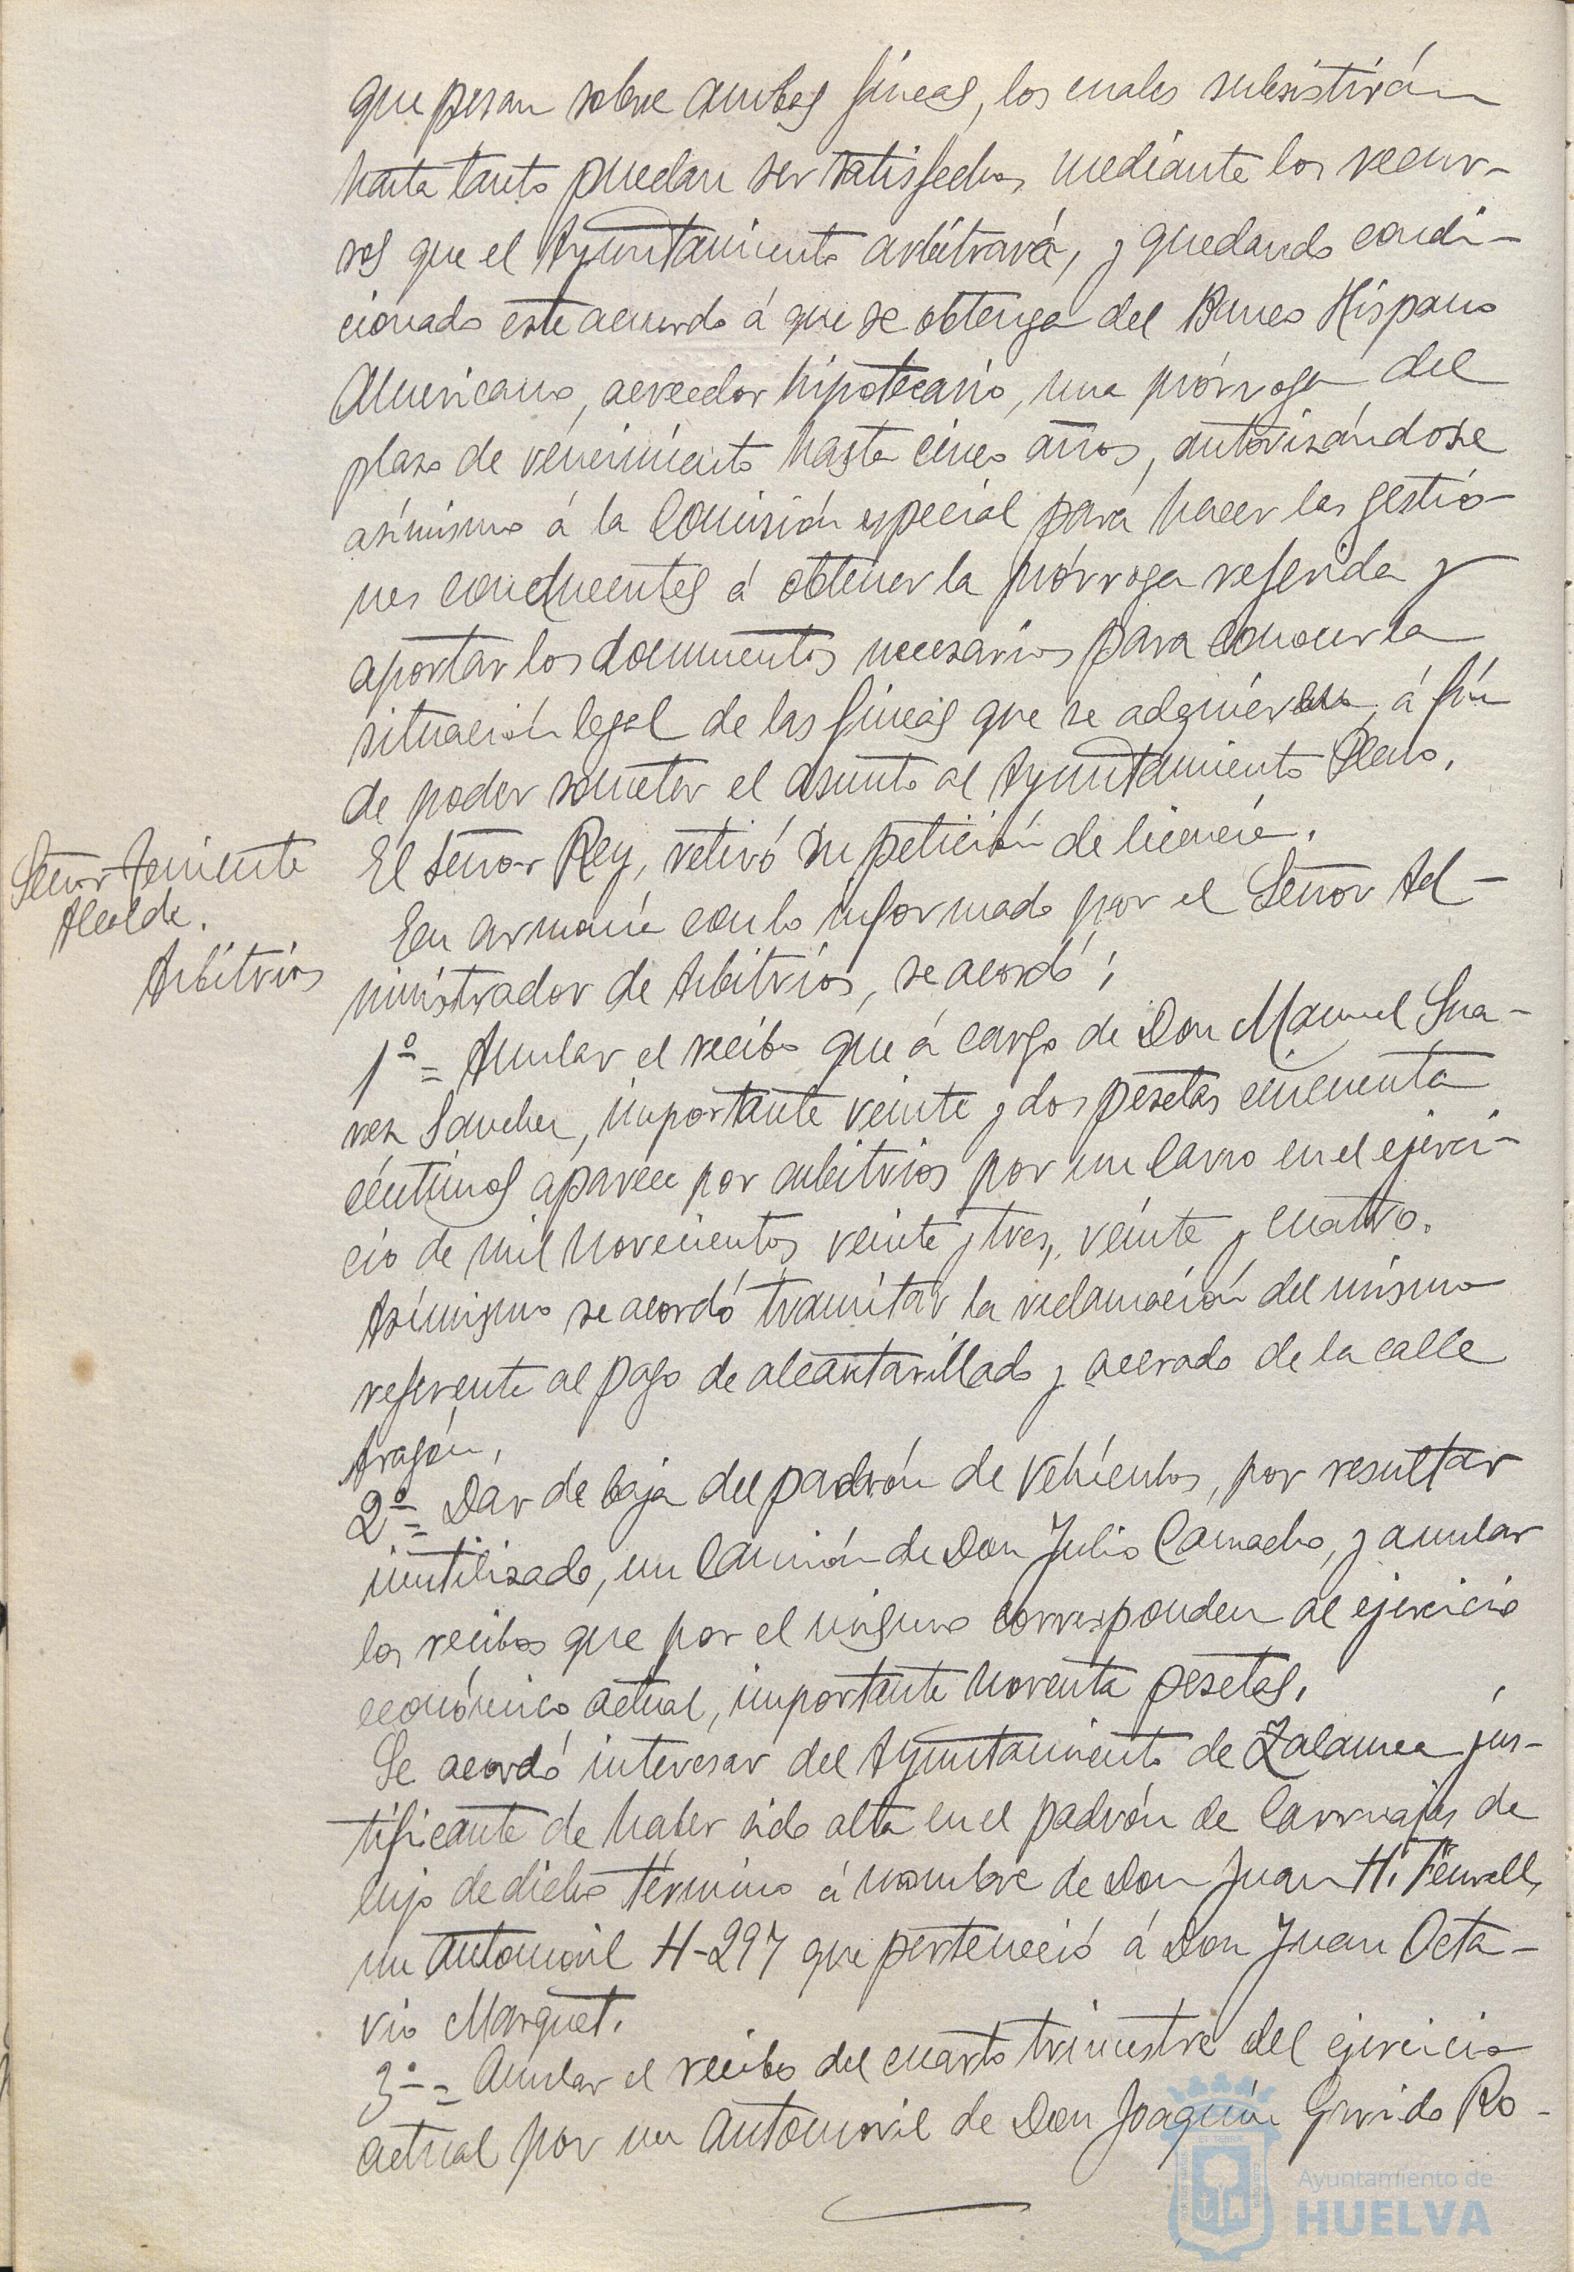 que pesan sobre ambas fincas, los cuales subsistirán
hasta tanto puedan ser satisfechos mediante los recur-
sos que el Ayuntamiento arbitrará, y quedando condi-
cionado este acuerdo á que se obtenga del Banco Hispano
Americano, acreedor hipotecario, una prórroga del
plazo de vencimiento hasta cinco años, autorizándose
asímismo á la Comisión especial para hacer las gestio-
nes conducentes á obtener la prórroga referida y
aportar los documentos necesarios para conocer la
situación legal de las fincas que se adquieran, á fín
de poder someter el asunto al Ayuntamiento Pleno.
Señor Teniente
Alcalde.
El Señor Rey, retiró su petición de licencia.
Arbitrios
En armonía con lo informado por el Señor Ad-
ministrador de Arbitrios, se acordó;
1º= Anular el recibo que á cargo de Don Manuel Sua-
rez Sanchez, importante veinte y dos pesetas cincuenta
céntimos aparece por arbitrios por un Carro en el ejerci-
cio de mil novecientos veinte y tres, veinte y cuatro.
Asímismo se acordó tramitar la reclamación del mismo
referente al pago de alcantarillado y acerado de la calle
Aragón.
2º= Dar de baja del padrón de Vehículos, por resultar
inutilizado, un Camión de Don Julio Camacho, y anular
los recibos que por el mismo corresponden al ejercicio
económico actual, importante noventa pesetas.
Se acordó interesar del Ayuntamiento de Zalamea jus-
tificante de haber sido alta en el padrón de Carruajes de
lujo de dicho término á nombre de Don Juan H.
un Automovil H-297 que perteneció á Don Juan Octa-
vio Marquet.
3º= Anular el recibo del cuarto trimestre del ejercicio
actual por un Automovil de Don Joaquín Garrido Ro-
Ayuntamiento de
HUELVA